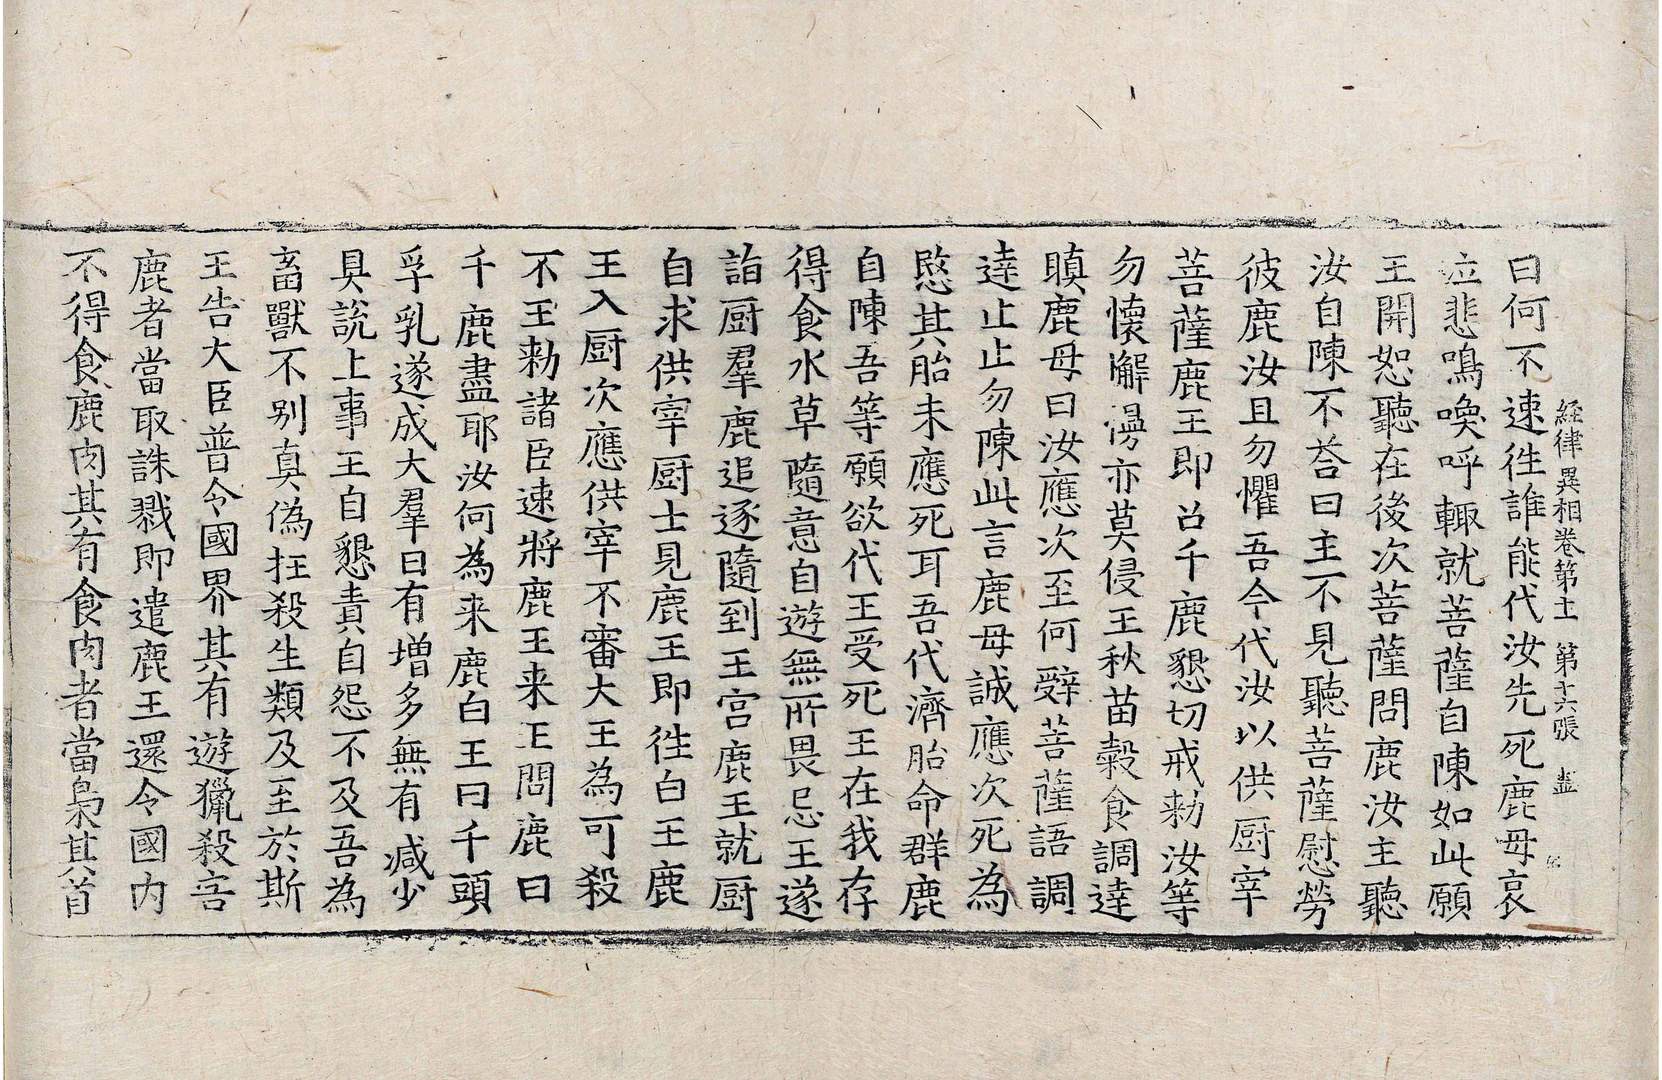 經律異相卷第十一 第十六張 盡
曰何不速徃誰能代汝先死鹿母哀
泣悲鳴喚呼輙就菩薩自陳如此願
王開恕聽在後次菩薩問鹿汝主聽
汝自陳不荅曰主不見聽菩薩慰勞
彼鹿汝且勿懼吾今代汝以供厨宰
菩薩鹿王即召千鹿懇切戒勑汝等
勿懷懈慢亦莫侵王秋苗穀食調達
瞋鹿母曰汝應次至何辤菩薩語調
達止止勿陳此言鹿母誠應次死為
愍其胎未應死耳吾代濟胎命群鹿
自陳吾等願欲代王受死王在我存
得食水草隨意自遊無所畏忌王遂
詣厨羣鹿追逐隨到王宮鹿王就厨
自求供宰厨士見鹿王即徃白王鹿
王入厨次應供宰不審大王為可殺
不王勑諸臣速將鹿王来王問鹿曰
千鹿盡耶汝何為来鹿白王曰千頭
孚乳遂成大羣日有增多無有減少
具説上事王自懇責自怨不及吾為
畜獸不别真偽抂殺生類及至於斯
王告大臣普令國界其有遊獵殺害
鹿者當取誅戮即遣鹿王還令國内
不得食鹿肉其有食肉者當梟其首